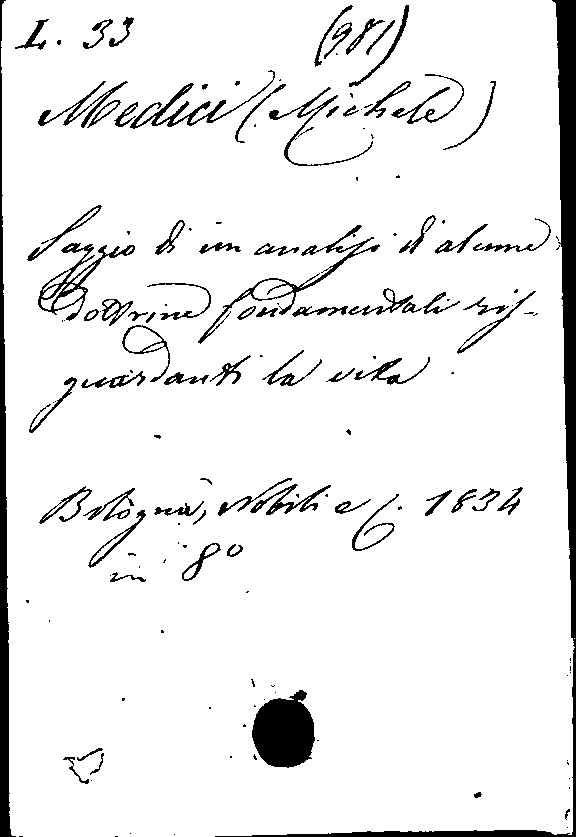 L. 33 (981)
Medici (Michele)
Saggio di un analisi di alcune
dottrine fondamentali ris-
guardanti la vita
Bologna, Nobili e C. 1834
in 8º